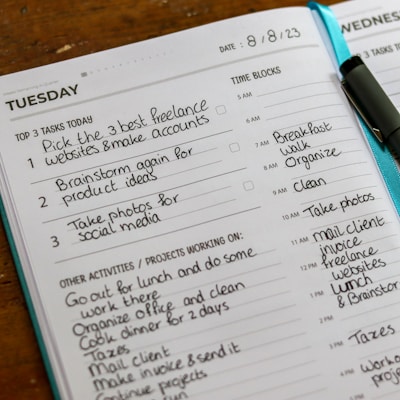 DATE : 8/8/23
TUESDAY
TOP 3 TASKS TODAY
1 Pick the 3 best freelance
websites & make accounts
2 Brainstorm again for
product ideas
3 Take photos for
social media
OTHER ACTIVITIES / PROJECTS WORKING ON:
Go out for lunch and do some
work there
Organize office and clean
Cook dinner for 2 days
Taxes
Mail client
Make invoice & send it
Continue projects
TIME BLOCKS
5 AM
6 AM
7 AM Breakfast
walk
8 AM Organize
9 AM clean
10 AM Take photos
11 AM mail client
invoice
12 PM freelance
websites
1 PM Lunch
& Brainstor
2 PM
3 PM Taxes
4 PM Workou
proje
WEDNES
TOP 3 TASKS TO
1